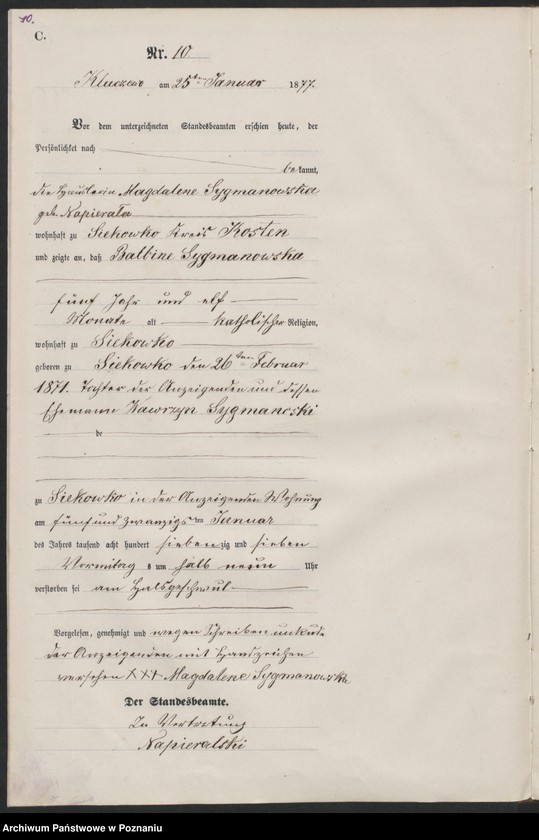 10.
C.
Nr. 10
Kluczewo am 25ten Januar 1877.
Vor dem unterzeichneten Standesbeamten erschien heute, der
Persönlichkeit nach
bekannt,
die Häuslerin Magdalene Sygmanowska
geb. Napierala
wohnhaft zu Siekowko Kreis Kosten
und zeigte an, daß Balbine Sygmanowska
fünf Jahr und elf
Monate alt katholischer Religion,
wohnhaft zu Siekowko
geboren zu Siekowko den 26ten Februar
1871. Tochter der Anzeigenden und dessen
Ehemann Sygmanoski
de
zu Siekowko in der Anzeigenden Wohnung
am fünf und zwanzigsten Januar
des Jahres tausend acht hundert siebenzig und sieben
Vormittag s um halb neun Uhr
verstorben sei am Halsgeschwul
Vorgelesen, genehmigt und wegen Schreibenunkunde
der Anzeigenden mit Handzeichen
versehen XXX Magdalene Sygmanowska
Der Standesbeamte.
In Vertretung
Napieralski
Archiwum Państwowe w Poznaniu